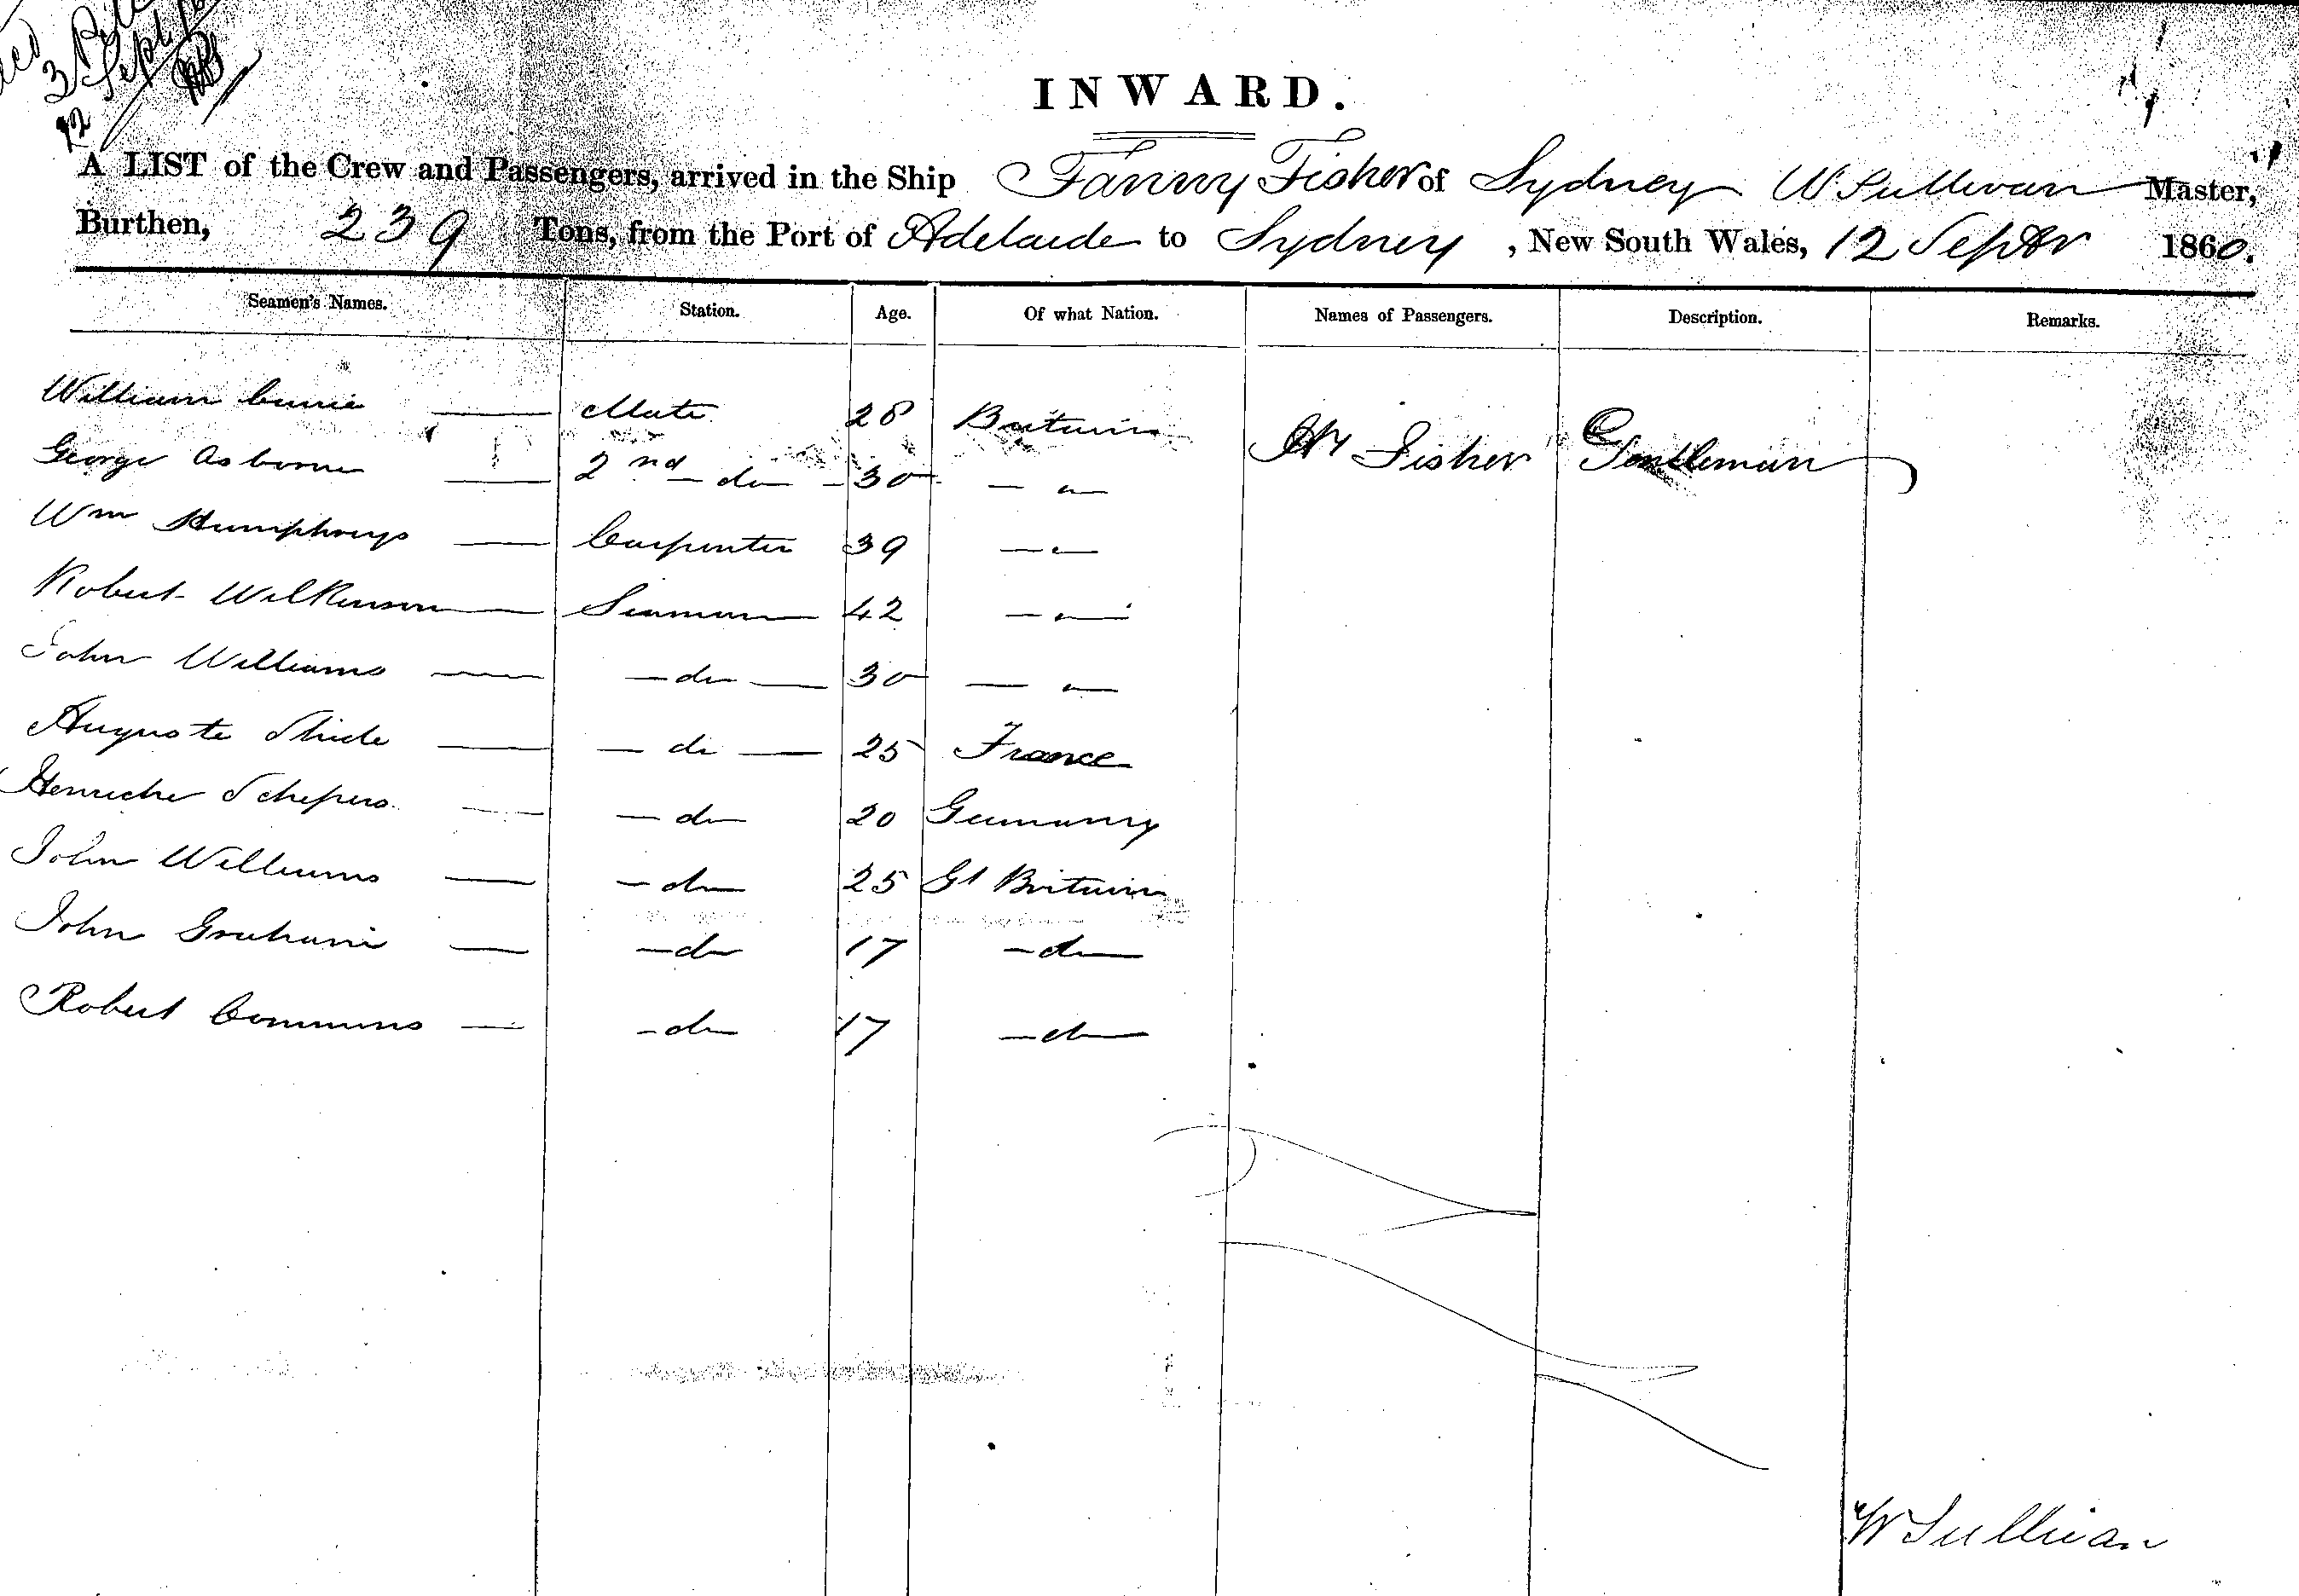 3
12 Sept
INWARD.
A LIST of the Crew and Passengers, arrived in the Ship Fanny Fisher of Sydney W Sullivan Master,
Burthen, 239 Tons, from the Port of Adelaide to Sydney, New South Wales, 12 Septbr 1860.
Seamen's Names. Station. Age. Of what Nation. Names of Passengers. Description. Remarks.
William Currie — Mate 28 Britain Mr Fisher Gentleman
George Asborne — 2nd do 30 — " —
Wm Humphreys — Carpenter 39 — " —
Robert Wilkinson — Seaman 42 — " —
John Williams — do — 30 — " —
Auguste — do — 25 France
Henriche Schepers — do 20 Germany
John Williams — do 25 Gt Britain
John Graham — do 17 — do —
Robert Commins — do 17 — do —
W Sullivan